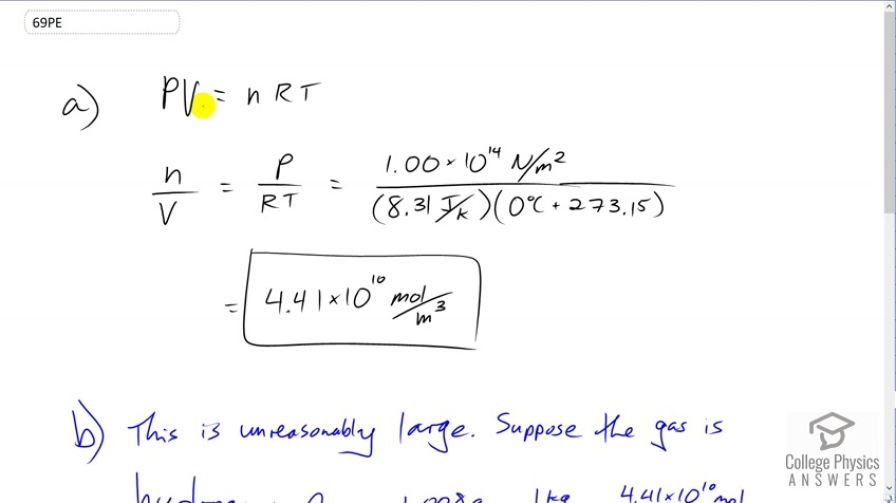 69PE
a) PV = nRT
n/V = P/RT = 1.00 × 10¹⁴ N/m² / (8.31 J/K)(0°C + 273.15)
= 4.41 × 10¹⁰ mol/m³
b) This is unreasonably large. Suppose the gas is
4.41×10¹⁰ mol
College Physics
ANSWERS